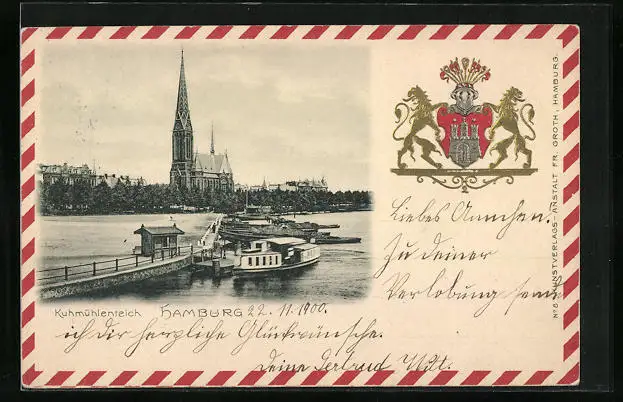 Kuhmühlenteich HAMBURG 22.11.1900.
Liebes Annchen.
Zu deiner
Verlobung sende
ich dir herzliche Glückwünsche.
Deine Gertrud
No 8. KUNSTVERLAGS-ANSTALT FR. GROTH, HAMBURG.